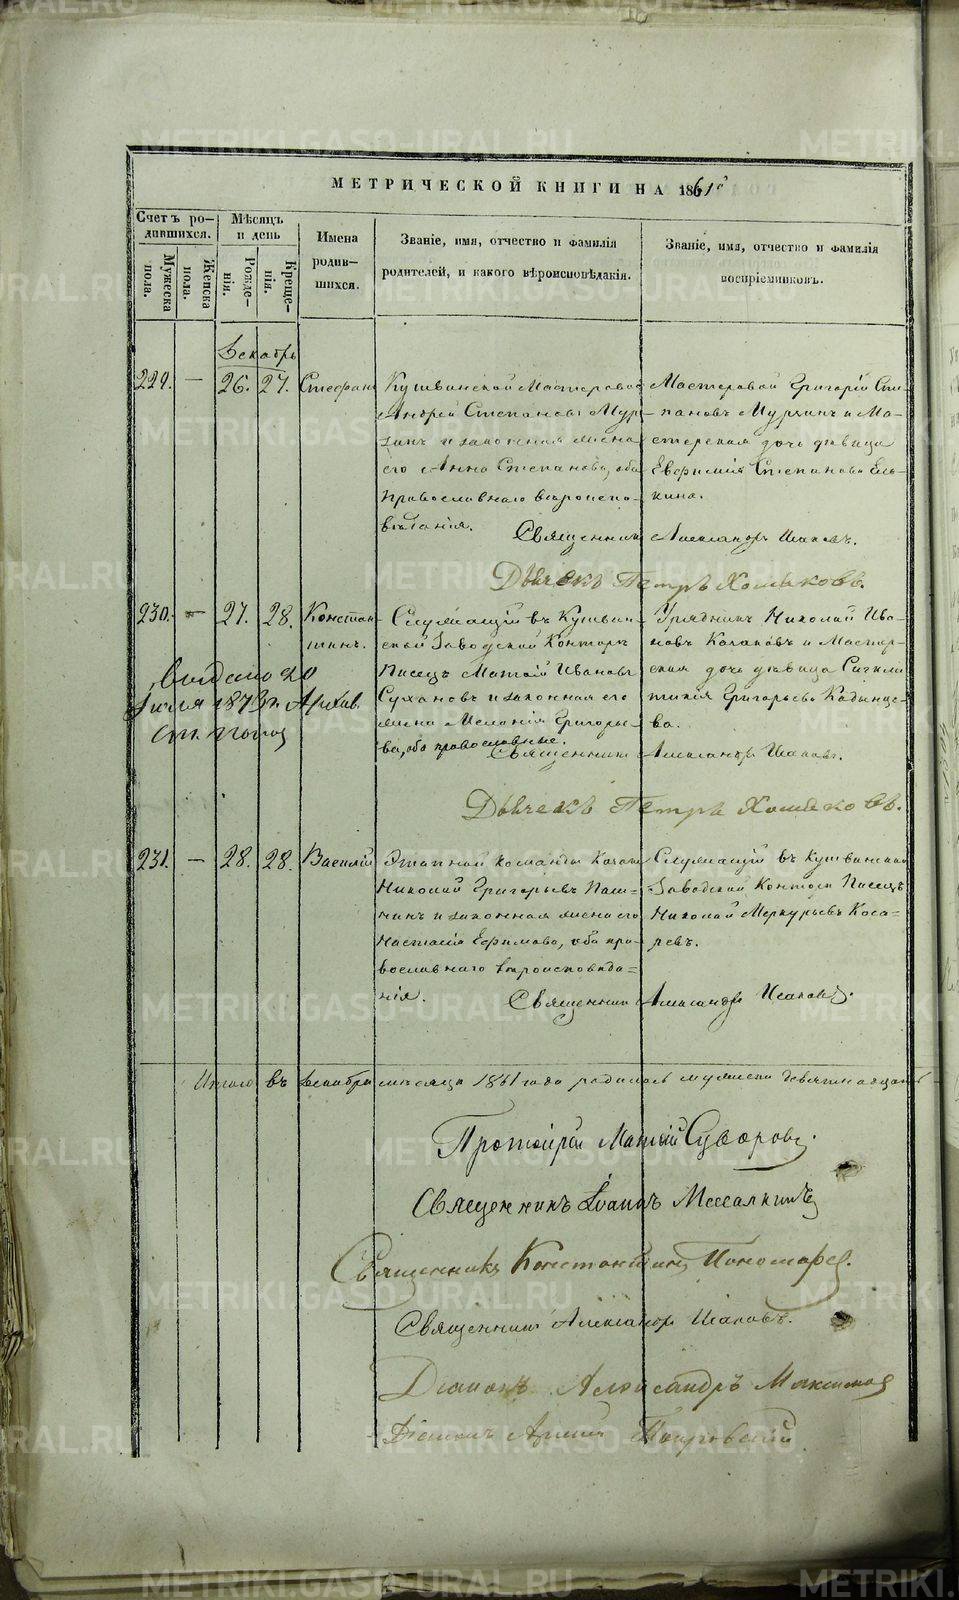 МЕТРИЧЕСКОЙ КНИГИ НА 1861й
Счетъ ро-
дившихся.
Мужеска
пола.
Женска
пола.
Мѣсяцъ
и день
Рожде-
нія.
Креще-
нія.
Имена
родив-
шихся.
Званіе, имя, отчество и фамилія
родителей, и какого вѣроисповѣданія.
Званіе, имя, отчество и фамилія
воспріемниковъ.
Декабрь
229. — 26. 27. Стефанъ
Кушвинской Мастеровой
Андрей Степановъ Мур-
зинъ и законная жена
его Анна Степанова, оба
православнаго вѣроиспо-
вѣданія.
Мастеровой Григорій Сте-
пановъ Мурзинъ и Ма-
стерская дочь дѣвица
Евфимія Степанова Ель-
кина.
Священникъ Александръ Исаковъ.
Дьячекъ Петръ Хомяковъ.
230. — 27. 28. Констан-
тинъ.
Выдано 20
Июля 1873 г.
Служащій въ Кушвин-
ской Заводской Конторѣ
Писецъ Матвій Ивановъ
Сухановъ и законная его
жена Меланія Григорье-
ва, оба православные.
Урядникъ Николай Ива-
новъ Казаковъ и Мастер-
ская дочь дѣвица
Григорьева Кадынце-
ва.
Священникъ Александръ Исаковъ.
Дьячекъ Петръ Хомяковъ.
231. — 28. 28. Василій
Этапной команды Казакъ
Николай Григорьевъ Паш-
нинъ и законная жена его
Настасія Ефимова, оба пра-
вославнаго вѣроисповѣда-
нія.
Служащій въ Кушвинской
Заводской Конторѣ Писецъ
Николай Меркурьевъ Коса-
ревъ.
Священникъ Александръ Исаковъ.
Итого въ Декабрѣ мѣсяцѣ 1861 года родилось мужеска девятнадцать
Протоіерей Матвій Суворовъ.
Священникъ Іоаннъ Мессалкинъ
Священникъ Константинъ Пономаревъ.
Священникъ Александръ Исаковъ.
Діаконъ Александръ Максимовъ
Діаконъ Покровский
METRIKI.GASO-URAL.RU